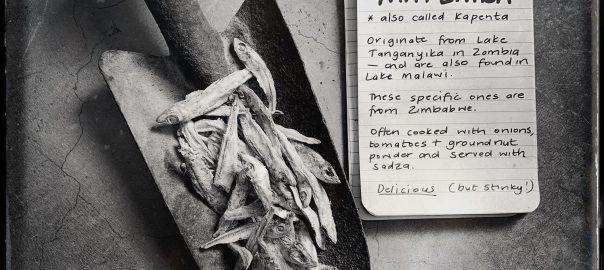 * also called Kapenta
Originate from Lake
Tanganyika in Zambia
– and are also found in
Lake Malawi.
These specific ones are
from Zimbabwe.
Often cooked with onions,
tomatoes + groundnut
powder and served with
sadza.
Delicious (but stinky!)